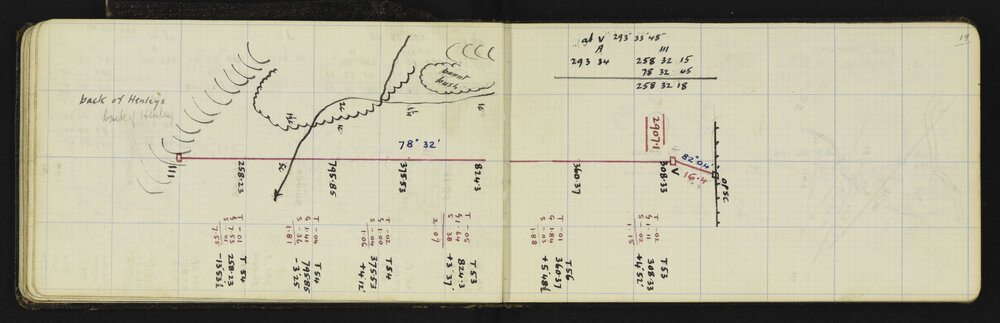 19
at V 293° 33' 48"
A III
293 34 258 32 15
78 32 45
258 32 18
burnt
bush
back of Henleys
back of Henley
78° 32'
2907.1
82° 04'
16.4
OPSC
III
258.23
795.85
375.53
824.3
360.37
308.33
V
T -.01
G 7.53
S -.01
7.55
T 54
258.23
T -.04
G 1.41
S -.36
1.81
T 54
795.85
-3° 25'
T -.02
G 1.00
S -.04
1.06
T 54
375.53
+4° 12'
T -.05
G 1.64
S -.38
2.07
T 53
824.3
+3° 37'
T -.01
G 1.84
S -.03
1.88
T 56
360.37
+5° 48½'
T -.02
G 1.11
S -.02
1.15
T 53
308.33
+4° 52'